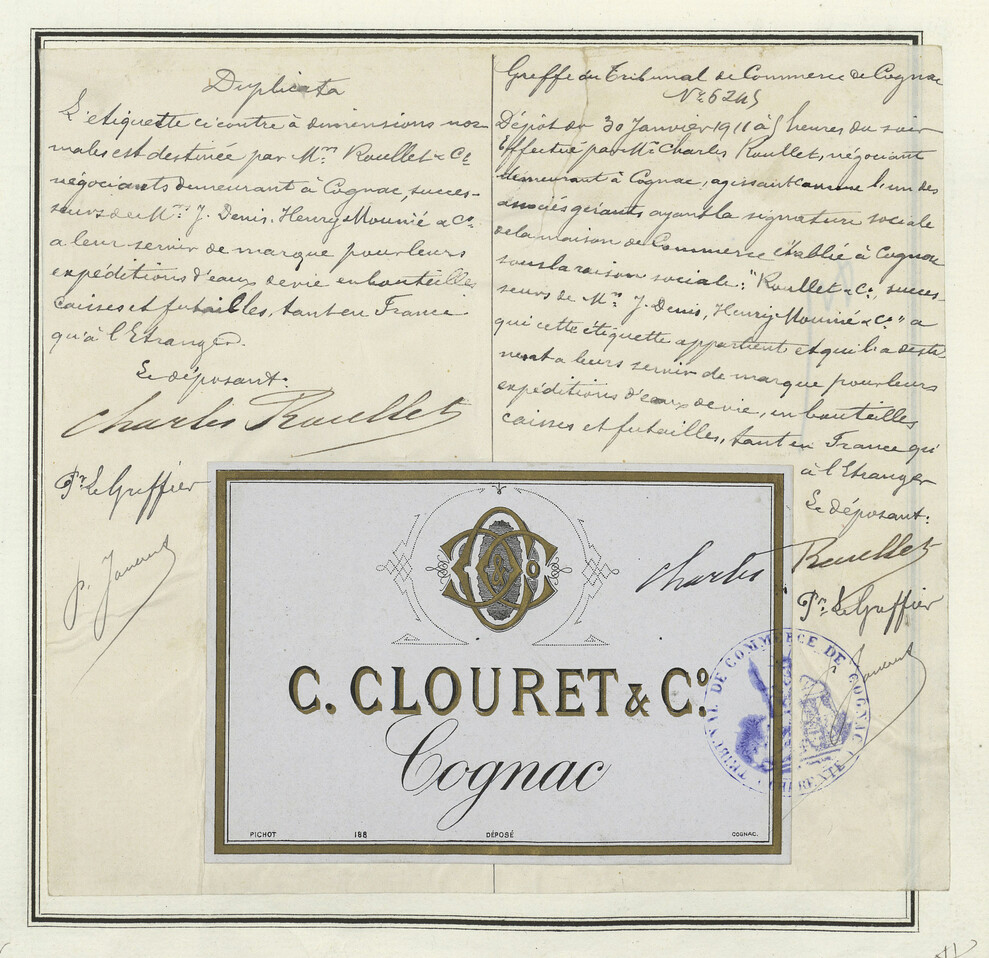 Duplicata
L'etiquette ci contre à dimensions nor-
males est destinée par Mrs Roullet & Cie
négociants demeurant à Cognac, succes-
seurs de Mrs J. Denis, Henry Mounié & Co.
a leur servir de marque pour leurs
expéditions d'eaux de vie en bouteilles
caisses et futailles, tant en France
qu'à l'Etranger.
Le déposant:
Charles Roullet
Pr Le Greffier
Greffe du Tribunal de Commerce de Cognac
No 6245
Dépôt du 30 Janvier 1911 à 5 heures du soir
Effectué par Mr Charles Roullet, négociant
demeurant à Cognac, agissant comme l'un des
associés gérants ayant la signature sociale
de la maison de Commerce établie à Cognac
sous la raison sociale: "Roullet & Co, succes-
seurs de Mrs J. Denis, Henry Mounié & Co" a
qui cette étiquette appartient et qui l'a desti
nent a leurs servir de marque pour leurs
expéditions d'eaux de vie, en bouteilles
caisses et futailles, tant en France qu'
à l'Etranger
Le déposant:
Charles Roullet
Pr Le Greffier
C. CLOURET & Co.
Cognac
PICHOT 188 DÉPOSÉ COGNAC.
TRIBUNAL DE COMMERCE DE COGNAC
CHARENTE